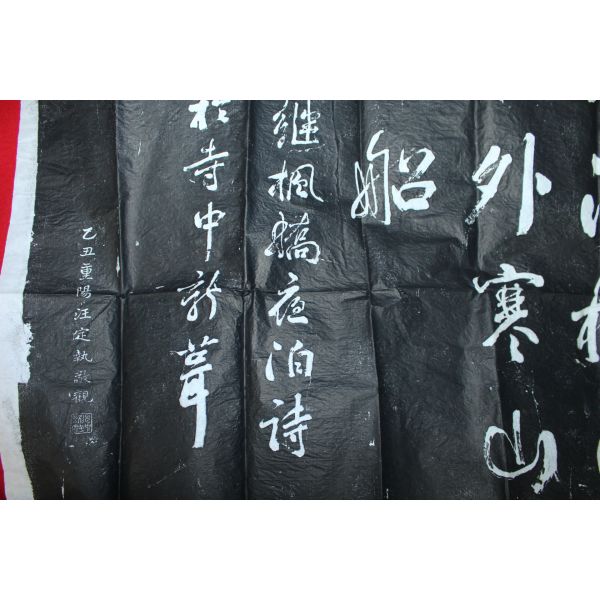 外寒山
船
继枫桥夜泊诗
於寺中新葺
乙丑重陽汪定執敬觀